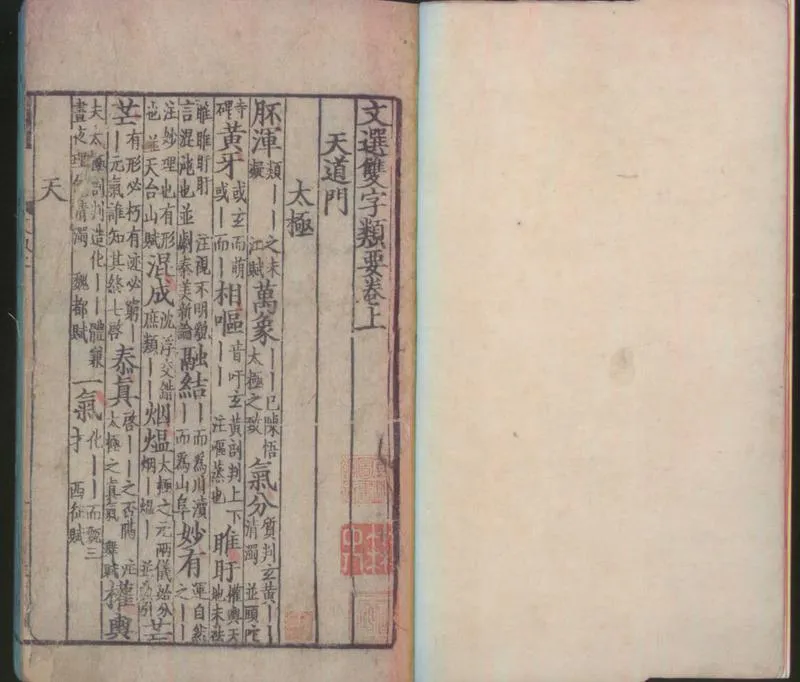 文選雙字類要卷上
天道門
太極
胚渾類｜｜之未凝 江賦萬象｜｜已陳悟太極之致氣分質判玄黃｜｜清濁 並頭陀
寺碑黃牙或玄而萌或｜而｜相嘔昔吁玄黃剖判上下｜｜ 注嘔蒸也睢盱權輿天地未袪
睢睢盱盱 注視不明貌言混沌也並劇秦美新論融結｜而爲川瀆｜而爲山阜妙有運自然之｜｜
注妙理也有形也並天台山賦混成沈浮交錯庶類｜｜烟熅太極之元兩儀始分烟｜熅｜ 並典引芒
芒｜有形必朽有迹必窮｜｜元氣誰知其終七啓泰真啓｜｜之否隔 注太極之真氣 舞賦權輿
夫太極剖判造化｜｜體兼晝夜理包清濁 魏都賦一氣化｜｜而甄三才 西征賦
天